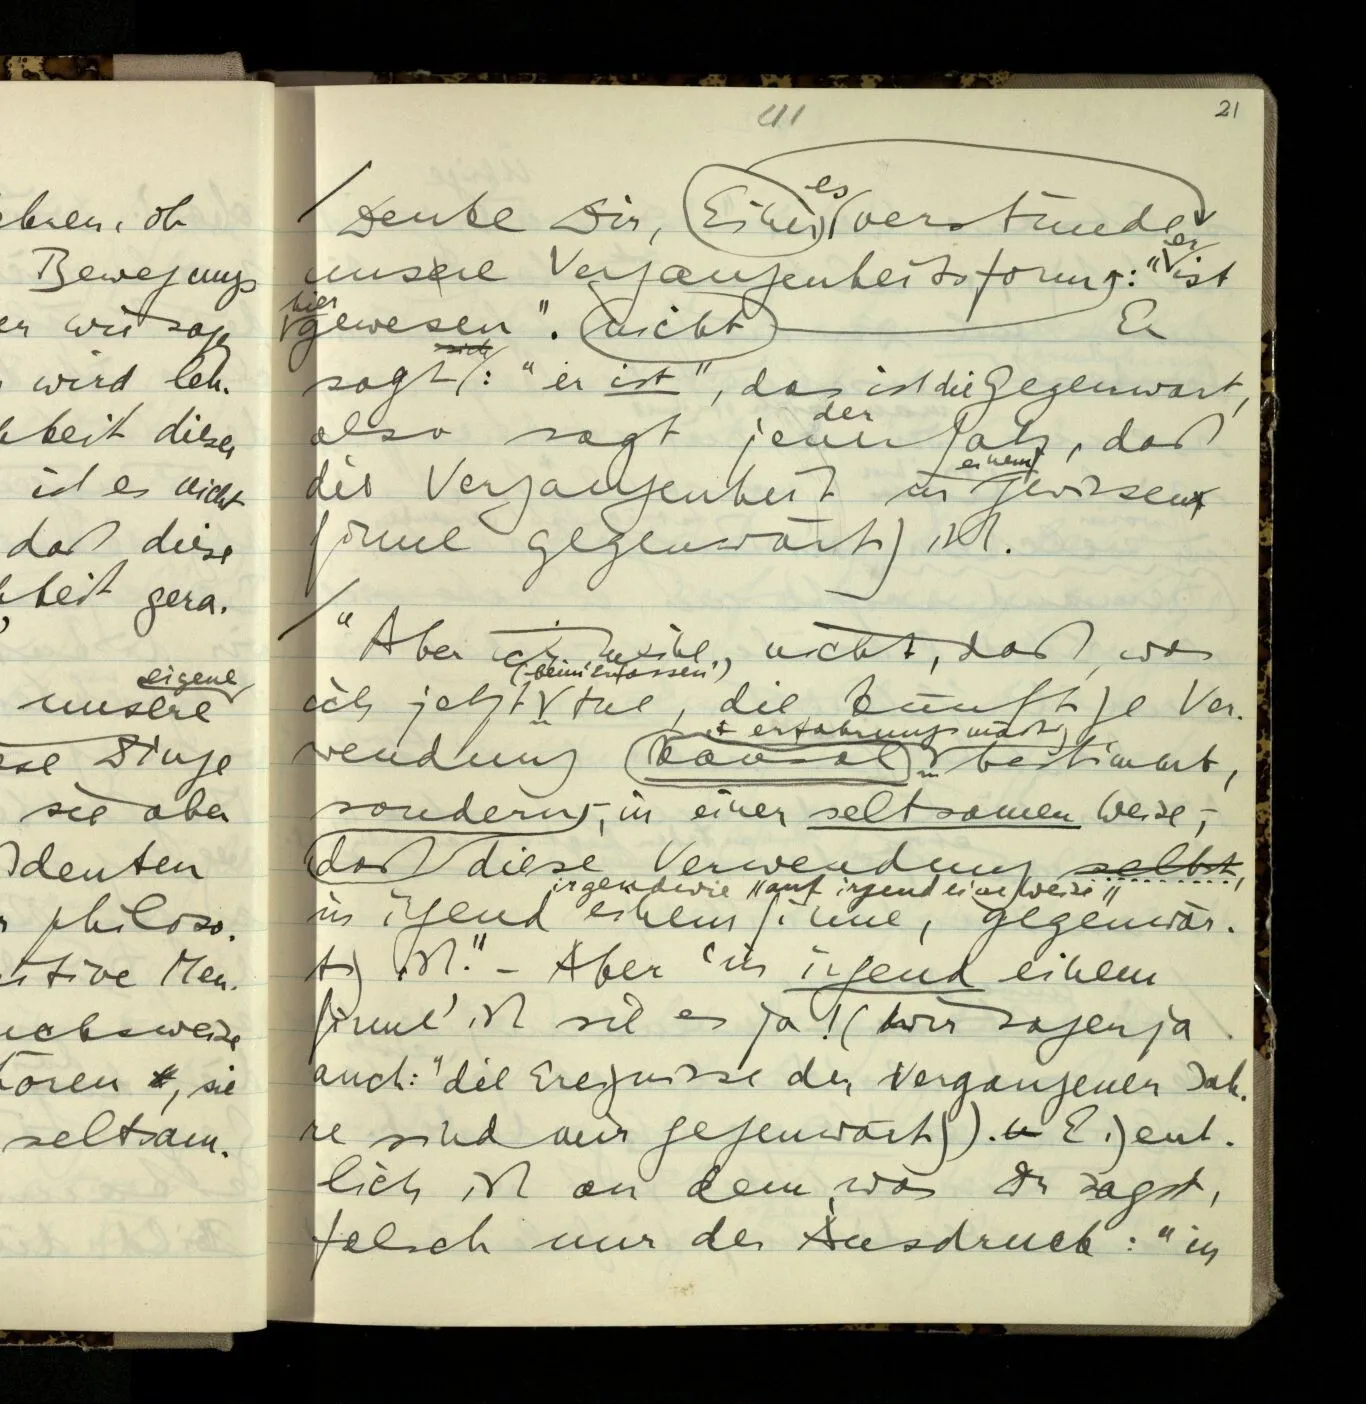 ehren, ob
Bewegungs
er wir sag
wird leh.
hkeit dieser
ist es nicht
daß diese
hkeit gera.
eigene
unsere
ese Dinge
sie aber
denten
r philoso.
itive Men.
uchsweise
toren, sie
seltsam.
411
21
/ Denke Dir, Einer es (verstünde
unsere Vergangenheitsform: "er ist
hier gewesen". nicht Er
sagt sich: "er ist", das ist die Gegenwart,
also sagt jener der Satz, daß
die Vergangenheit in einem gewissen
Sinne gegenwärtig ist.
/ "Aber ich meine nicht, daß, was
(beim 'erfassen')
ich jetzt tue, die künftige Ver-
ist erfahrungsmäßig
wendung kausal bestimmt,
sondern, in einer seltsamen Weise,
daß diese Verwendung selbst,
irgendwie "auf irgend eine Weise"
in irgend einem Sinne, gegenwär-
tig ist." – Aber 'in irgend einem
Sinne' ist sie es ja! (Wir sagen ja
auch: "die Ereignisse der vergangenen Jah-
re sind mir gegenwärtig). Eigent-
lich ist an dem, was Du sagst,
falsch nur der Ausdruck: "in